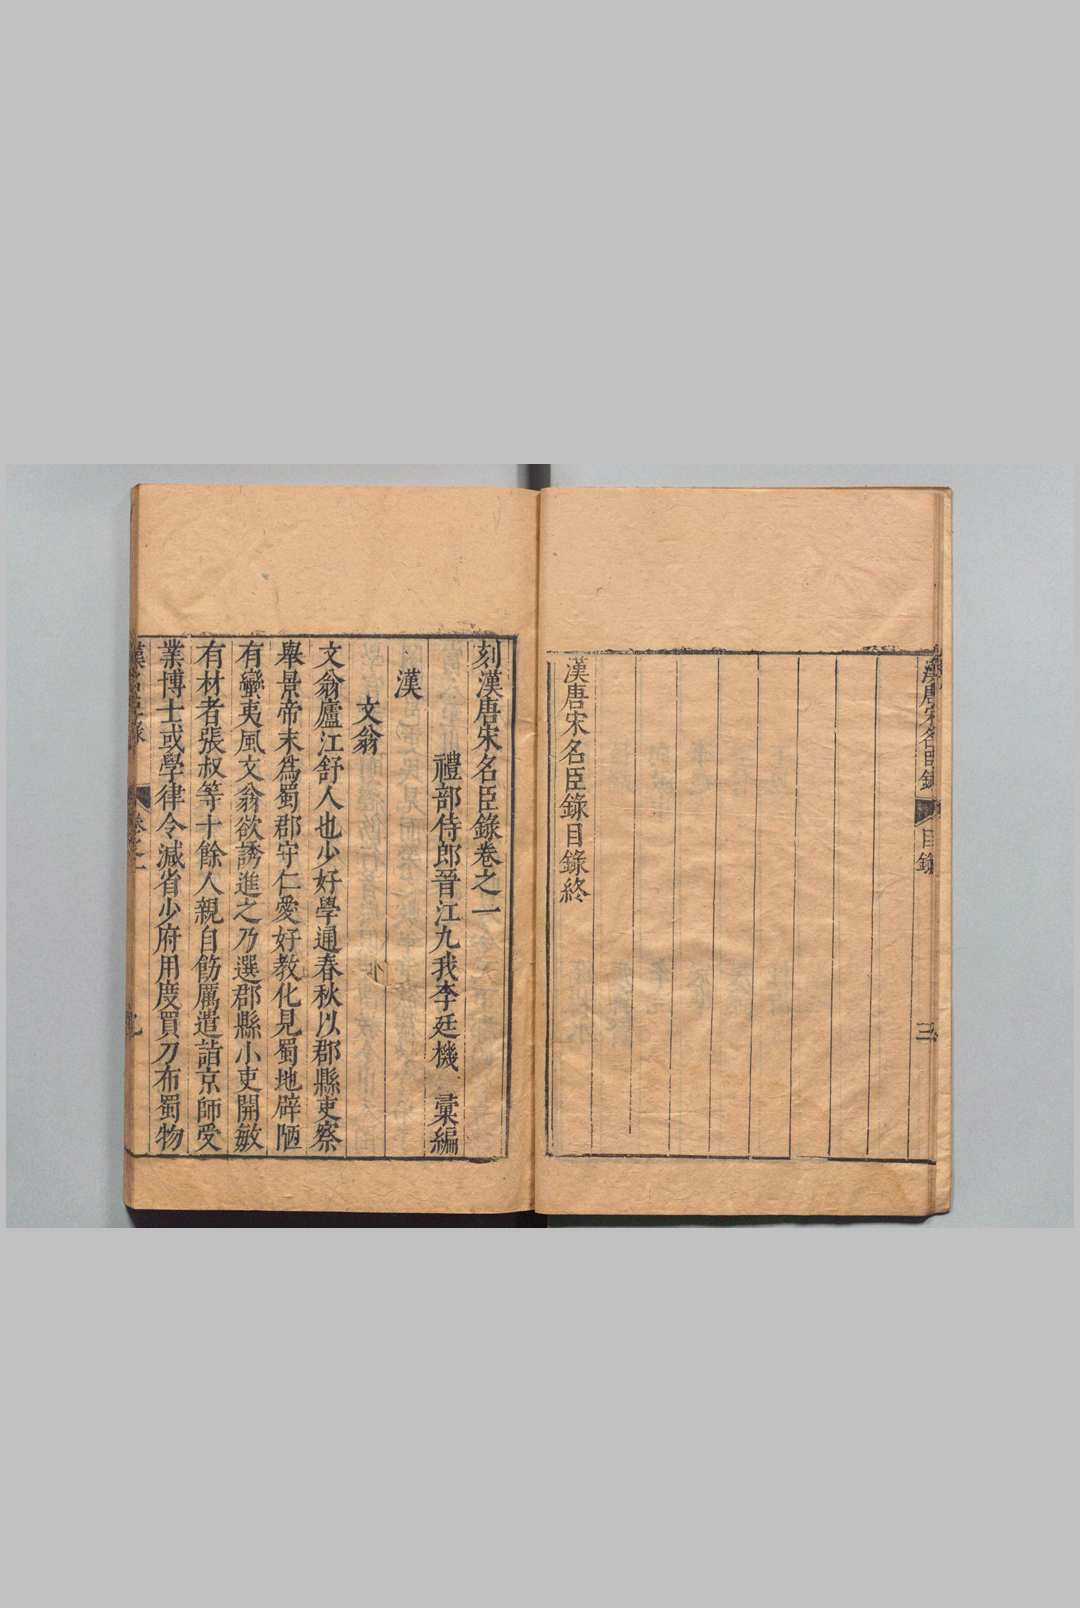 漢唐宋名臣錄
目錄
三
漢唐宋名臣錄目錄終
刻漢唐宋名臣錄卷之一
禮部侍郎晉江九我李廷機　彙編
漢
文翁
文翁廬江舒人也少好學通春秋以郡縣吏察
舉景帝末為蜀郡守仁愛好教化見蜀地辟陋
有蠻夷風文翁欲誘進之乃選郡縣小吏開敏
有材者張叔等十餘人親自飭厲遣詣京師受
業博士或學律令減省少府用度買刀布蜀物
卷之一